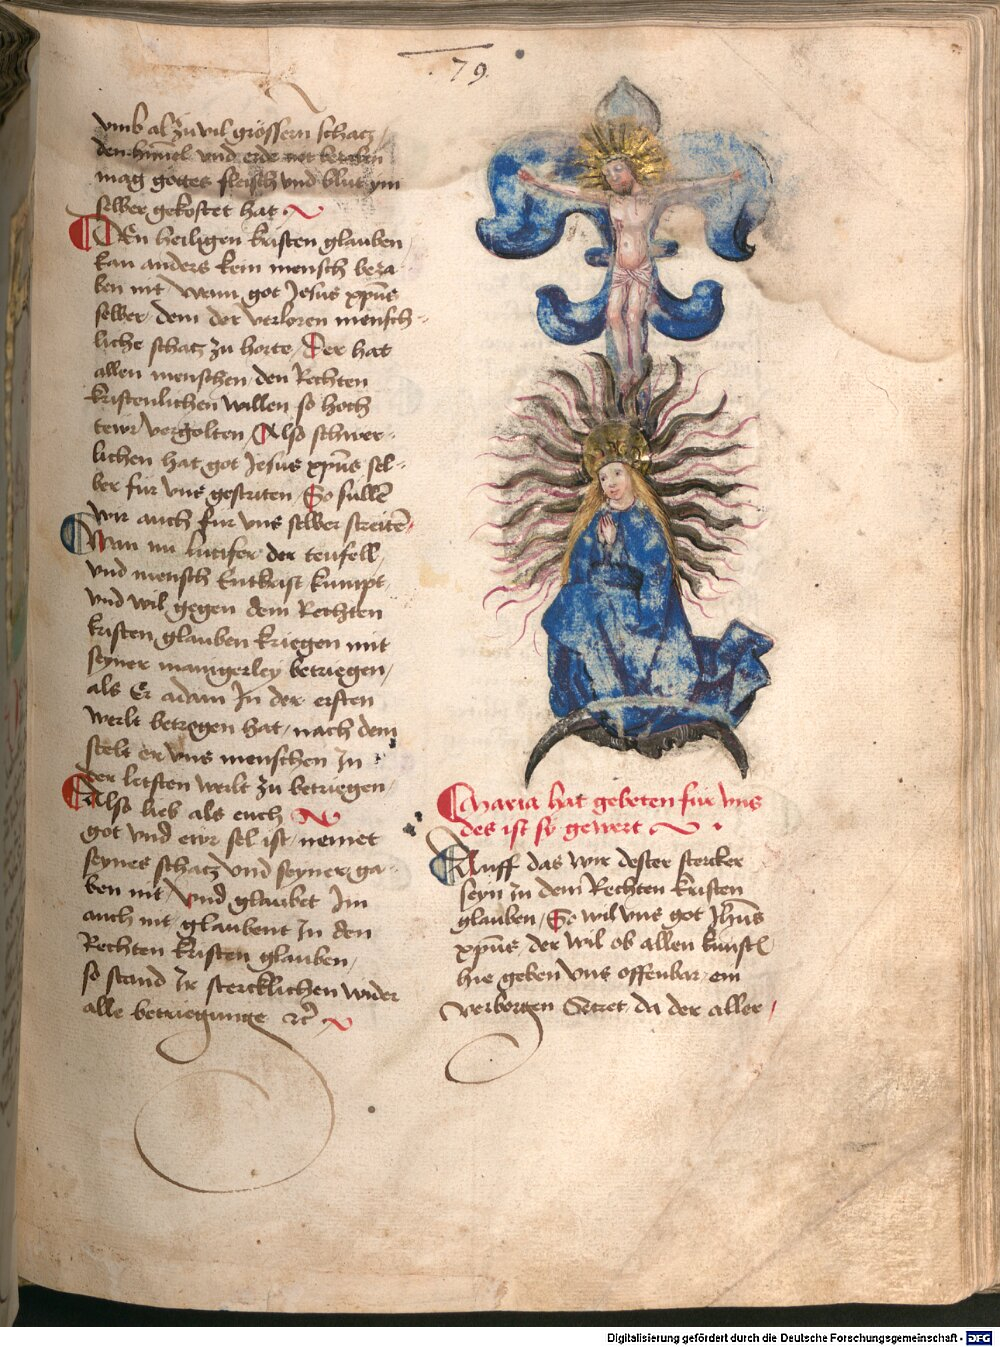 79
vmb al zu vil grössern schatz
den himel vnd erde nit bezalen
mag gottes fleisch vnd blut ym
selber gekostet hat
DEn heiligen kristen glauben
kan anders kein mensch beza
len nit wann got Jesus xpũs
selber dem der verloren mensch-
liche schatz zu horte / Der hat
allen menschen den Rechten
kristenlichen willen so hoch
tewr vergolten / Also schwer-
lichen hat got Jesus xpũs sel-
ber für vns gestriten / So sullẽ
wir auch für vns selber streitẽ
Wan nu lucifer der teufell
vnd mensch Entkrist kumpt
vnd wil gegen dem Rechten
kristen glauben kriegen mit
seyner manigerley betriegen /
als Er adam In der ersten
werlt betrogen hat / nach dem
stelt er vns menschen In
der letsten werlt zu betriegen /
Also lieb als euch
got vnd ewr sel ist / nemet
seynes schatz vnd seyner ga-
ben nit / Vnd glaubet Im
auch nit / glaubent In den
Rechten kristen glauben /
so stand Ir stercklichen wider
alle betriegunge rc̃
Maria hat gebeten für vns
des ist sy gewert
Auff das wir dester stercker
seyn in dem Rechten kristen
glauben / So wil vns got Jhũs
xpũs der wil ob allen künstẽ
hie geben vns offenbar ein
verborgen Secret da der aller
Digitalisierung gefördert durch die Deutsche Forschungsgemeinschaft - DFG